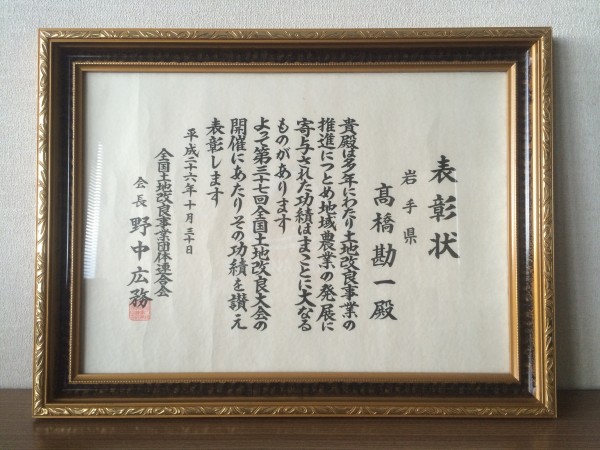 表彰状
岩手県
髙橋勘一殿
貴殿は多年にわたり土地改良事業の
推進につとめ地域農業の発展に
寄与された功績はまことに大なる
ものがあります
よって第三十七回全国土地改良大会の
開催にあたりその功績を讃え
表彰します
平成二十六年十月三十日
全国土地改良事業団体連合会
会長 野中広務